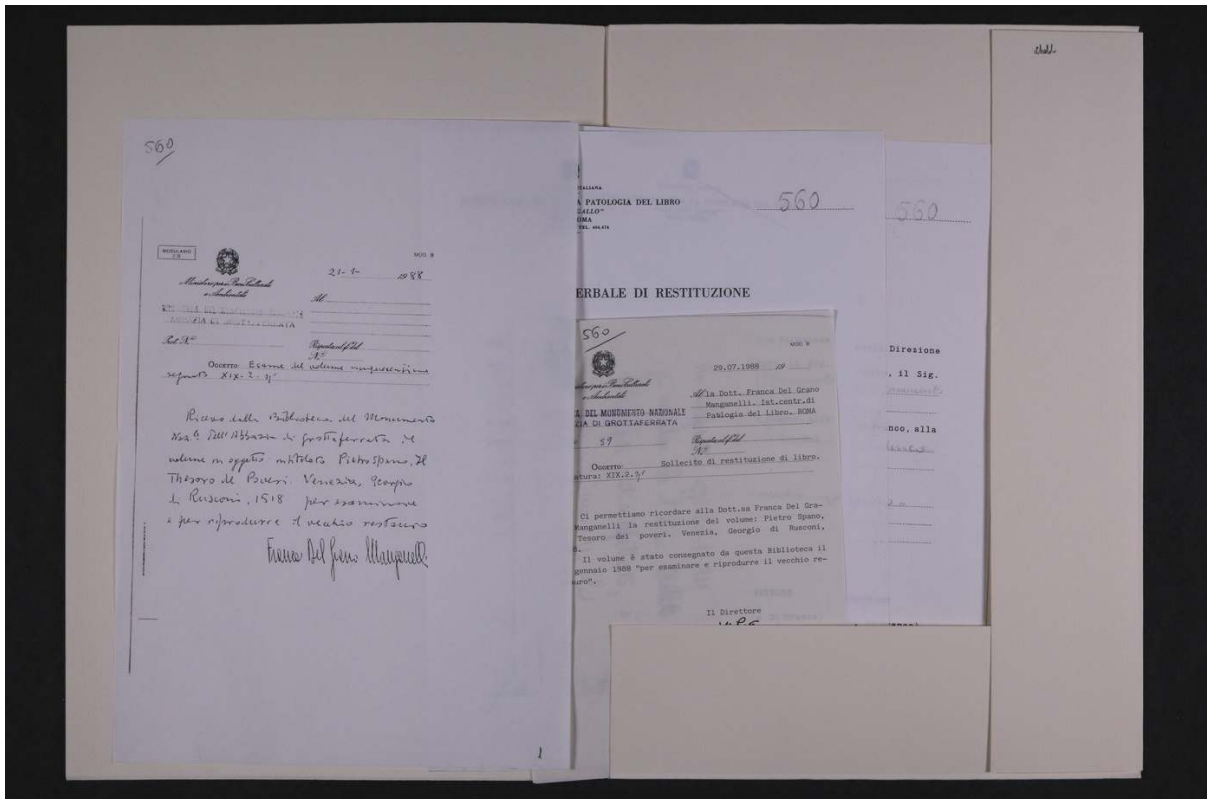 560
MODULARIO
MOD. 8
21-1- 1988
Ministero per i Beni Culturali
e Ambientali
Al
ABBAZIA DI GROTTAFERRATA
Prot. N.º
Risposta al f.º del
N.º
OGGETTO: Esame del volume
segnato XIX-2-
Ricevo dalla Biblioteca del Monumento
Naz.le dell'Abbazia di Grottaferrata il
volume in oggetto intitolato Pietro Spano, Il
Thesoro de Poveri. Venezia, Georgio
di Rusconi, 1518 per esaminare
e per riprodurre il vecchio restauro
Franca Del Grano Manganelli
1
ITALIANA
A PATOLOGIA DEL LIBRO
GALLO"
OMA
TEL.
560
ERBALE DI RESTITUZIONE
560
MOD. 8
29.07.1988 19
per i Beni Culturali
e Ambientali
Al la Dott. Franca Del Grano
Manganelli. Ist.centr.di
Patologia del Libro. ROMA
A DEL MONUMENTO NAZIONALE
ZIA DI GROTTAFERRATA
59
Risposta al f.º del
N.º
OGGETTO: Sollecito di restituzione di libro.
atura: XIX.2.
Ci permettiamo ricordare alla Dott.sa Franca Del Gra-
Manganelli la restituzione del volume: Pietro Spano,
Tesoro dei poveri. Venezia, Georgio di Rusconi,
8.
Il volume è stato consegnato da questa Biblioteca il
gennaio 1988 "per esaminare e riprodurre il vecchio re-
uro".
Il Direttore
560
Direzione
, il Sig.
nco, alla